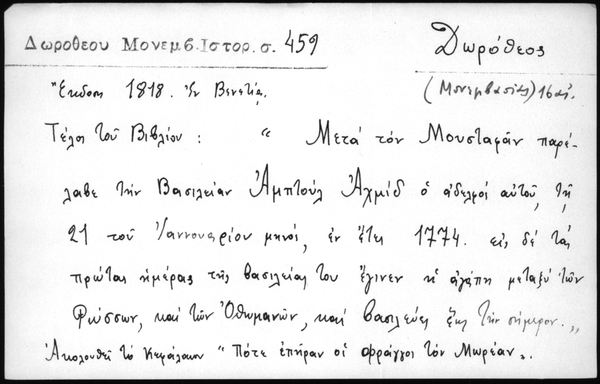 Δωροθεου Μονεμβ. Ιστορ. σ. 459
Δωρόθεος
Ἔκδοσι 1818. Ἐν Βενετίᾳ.
(Μονεμβασίας) 16 αἰ.
Τέλος τοῦ Βιβλίου : " Μετά τόν Μουσταφᾶν παρέ-
λαβε τήν Βασιλείαν Ἀμπτούλ Ἀχμίδ ὁ ἀδελφός αὐτοῦ, τῇ
21 τοῦ Ἰαννουαρίου μηνός, ἐν ἔτει 1774. εἰς δέ τάς
πρώτας ἡμέρας τῆς βασιλείας του ἔγινεν ἡ ἀγάπη μεταξύ τῶν
Ρώσσων, καί τῶν Ὀθωμανῶν, καί βασιλεύει ἕως τήν σήμερον. „
Ἀκολουθεῖ τό κεφάλαιον " Πότε ἐπῆραν οἱ φράγγοι τόν Μωρέαν „.